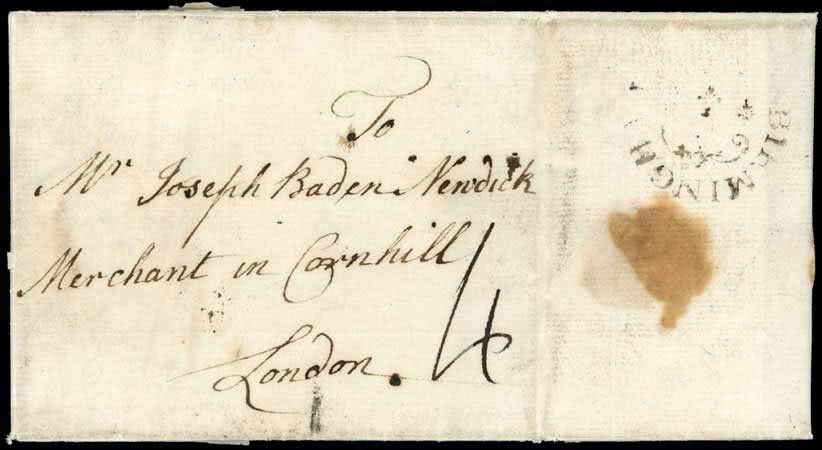 To
Mr Joseph Baden Newdick
Merchant in Cornhill
London.
4
BIRMINGHAM